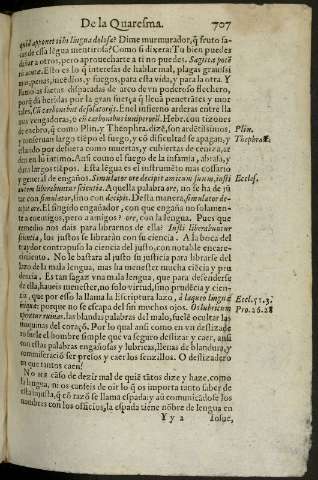 De la Quaresma. 707
quid apponet tibi lingua dolosa? Dime murmurador, q̃ fruto sa-
cas de essa lẽgua mentirosa? Como si dixera: Tu bien puedes
dañar a otros, pero aprouecharte a ti no puedes. Sagittæ potẽ
tis acutæ. Esto es lo q̃ interesas de hablar mal, plagas grauissi
mas, pesadũbres, y fuegos, para esta vida, y para la otra. Y
llamolas saetas disparadas de arco de vn poderoso flechero,
porq̃ da heridas por la gran fuerça q̃ lleuã penetrãtes y mor
tales, Cũ carbonibus desolatorijs. En el infierno arderas entre ella
vengadoras, ò cũ carbonibus iuniperorũ. Hebr. con tizones
de enebro, q̃ como Plin. y Theophra. dizẽ, son ardẽtissimos, Plin.
y conseruan largo tiẽpo el fuego, y cõ dificultad se apagan, y Theophrast.
estando por defuera como muertas, y cubiertas de ceniza, ar
den en lo intimo. Ansi como el fuego de la infamia, abrasa, y
dura largos tiẽpos. Esta lẽgua es el instrumẽto mas cossario
y general de engaños. Simulator ore decipit amicum suum, iusti Eccles.
autem liberabuntur scientia. Aquella palabra ore, no se ha de jũ
tar con simulator, sino con decipit. Desta manera, simulator de-
cipit ore. El fingido engañador, con que engaña no solamen-
te a enemigos, pero a amigos? ore, con la lengua. Pues que
remedio nos dais para librarnos de ella? Iusti liberabuntur
scientia, los justos se libraràn con su ciencia. A la boca del
traydor contrapuso la ciencia del justo, con notable encare-
cimiento. No le bastara al justo su justicia para librarse del
lazo de la mala lengua, mas ha menester mucha ciẽcia y pru
dencia. Es tan sagaz vna mala lengua, que para defenderse
de ella, haueis menester, no solo virtud, sino prudẽcia y cien-
cia, que por esso la llama la Escriptura lazo, à laqueo linguæ Eccl. 51. 3.
iniquæ: porque no se escapa del sin muchos ojos. Os lubricum Pro. 26. 28
operatur ruinas, las blandas palabras del malo, suelẽ ocultar las
maquinas del coraçõ. Por lo qual ansi como en vn deslizade
ro suele el hombre simple que va seguro deslizar y caer, ansi
con estas palabras engañosas y lubricas, llenas de blandura, y
conmiseraciõ ser presos y caer los senzillos. O deslizadero
en que tantos caen!
No me cãso de dezir mal de quiẽ tãtos dize y haze, como
la lengua, ni os canseis de oir lo q̃ os importa tanto saber de
esta, q̃ cõ razõ se llama espada: y aũ comunicãdose los
nombres con los officios, la espada tiene nõbre de lengua en
Y y 2 Iosue,